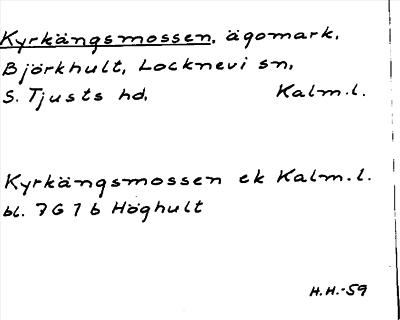 Kyrkängsmossen, ägomark,
Björkhult, Locknevi sn,
S. Tjusts hd, Kalm.l.
Kyrkängsmossen ek Kalm.l.
bl. 7G 7b Höghult
H.H.-59